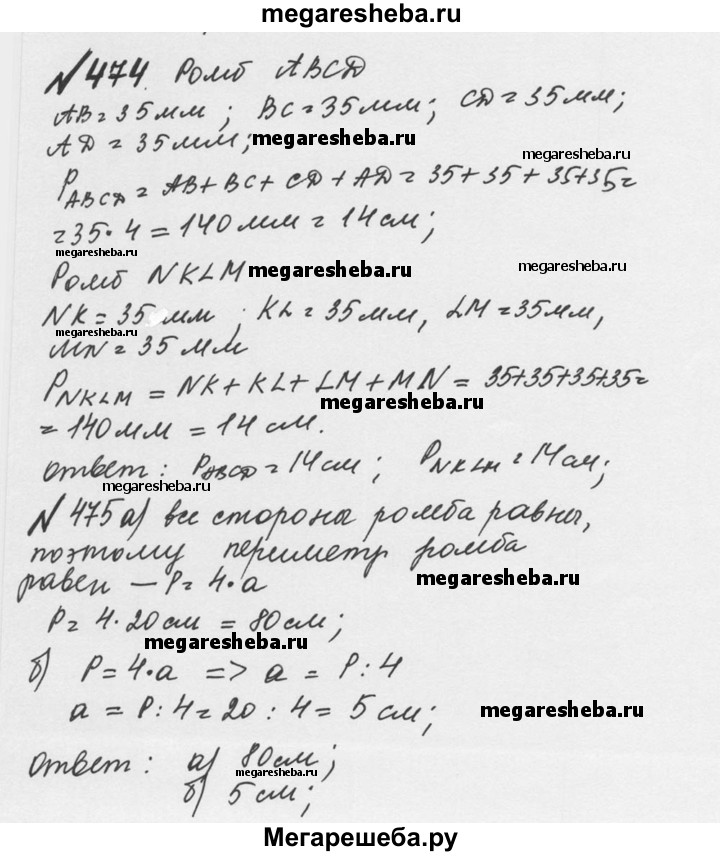 megaresheba.ru
№474. Ромб ABCD
AB = 35 мм ; BC = 35 мм; CD = 35 мм;
AD = 35 мм; megaresheba.ru
megaresheba.ru
P ABCD = AB + BC + CD + AD = 35 + 35 + 35+35 =
= 35 · 4 = 140 мм = 14 см;
megaresheba.ru
Ромб NKLM megaresheba.ru megaresheba.ru
NK = 35 мм ; KL = 35 мм, LM = 35 мм,
megaresheba.ru
MN = 35 мм
P NKLM = NK + KL + LM + MN = 35+35+35+35 =
megaresheba.ru
= 140 мм = 14 см.
ответ: P ABCD = 14 см ; P NKLM = 14 см;
megaresheba.ru
№475 а) все стороны ромба равны,
поэтому периметр ромба
равен — P = 4 · a megaresheba.ru
P = 4 · 20 см = 80 см;
megaresheba.ru
б) P = 4 · a => a = P : 4
a = P : 4 = 20 : 4 = 5 см; megaresheba.ru
ответ: а) 80 см;
megaresheba.ru
б) 5 см;
Мегарешеба.ру